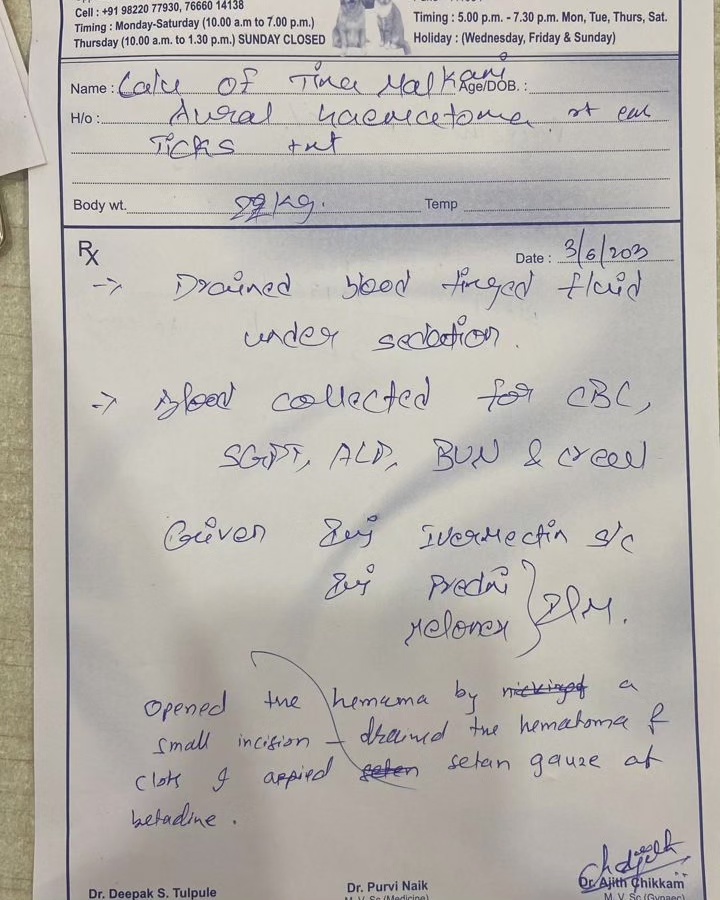 Cell : +91 98220 77930, 76660 14138
Timing : Monday-Saturday (10.00 a.m to 7.00 p.m.)
Thursday (10.00 a.m. to 1.30 p.m.) SUNDAY CLOSED
Timing : 5.00 p.m. - 7.30 p.m. Mon, Tue, Thurs, Sat.
Holiday : (Wednesday, Friday & Sunday)
Name : of Tina Malkani Age/DOB. :
H/o : Aural ear
Ticks
Body wt. kg. Temp
Rx
Date : 3/6/
→ Drained blood tinged fluid
under sedation.
→ Blood collected for CBC,
SGPT, ALP, BUN & creat
Given Inj Ivermectin s/c
Inj Predni
Melonex } I/M.
Opened the by a
small incision – drained the hematoma &
clots & setan gauze
betadine .
Dr. Deepak S. Tulpule
Dr. Purvi Naik
M. V. Sc (Medicine)
Dr. Ajith Chikkam
M. V. Sc (Gynaec)